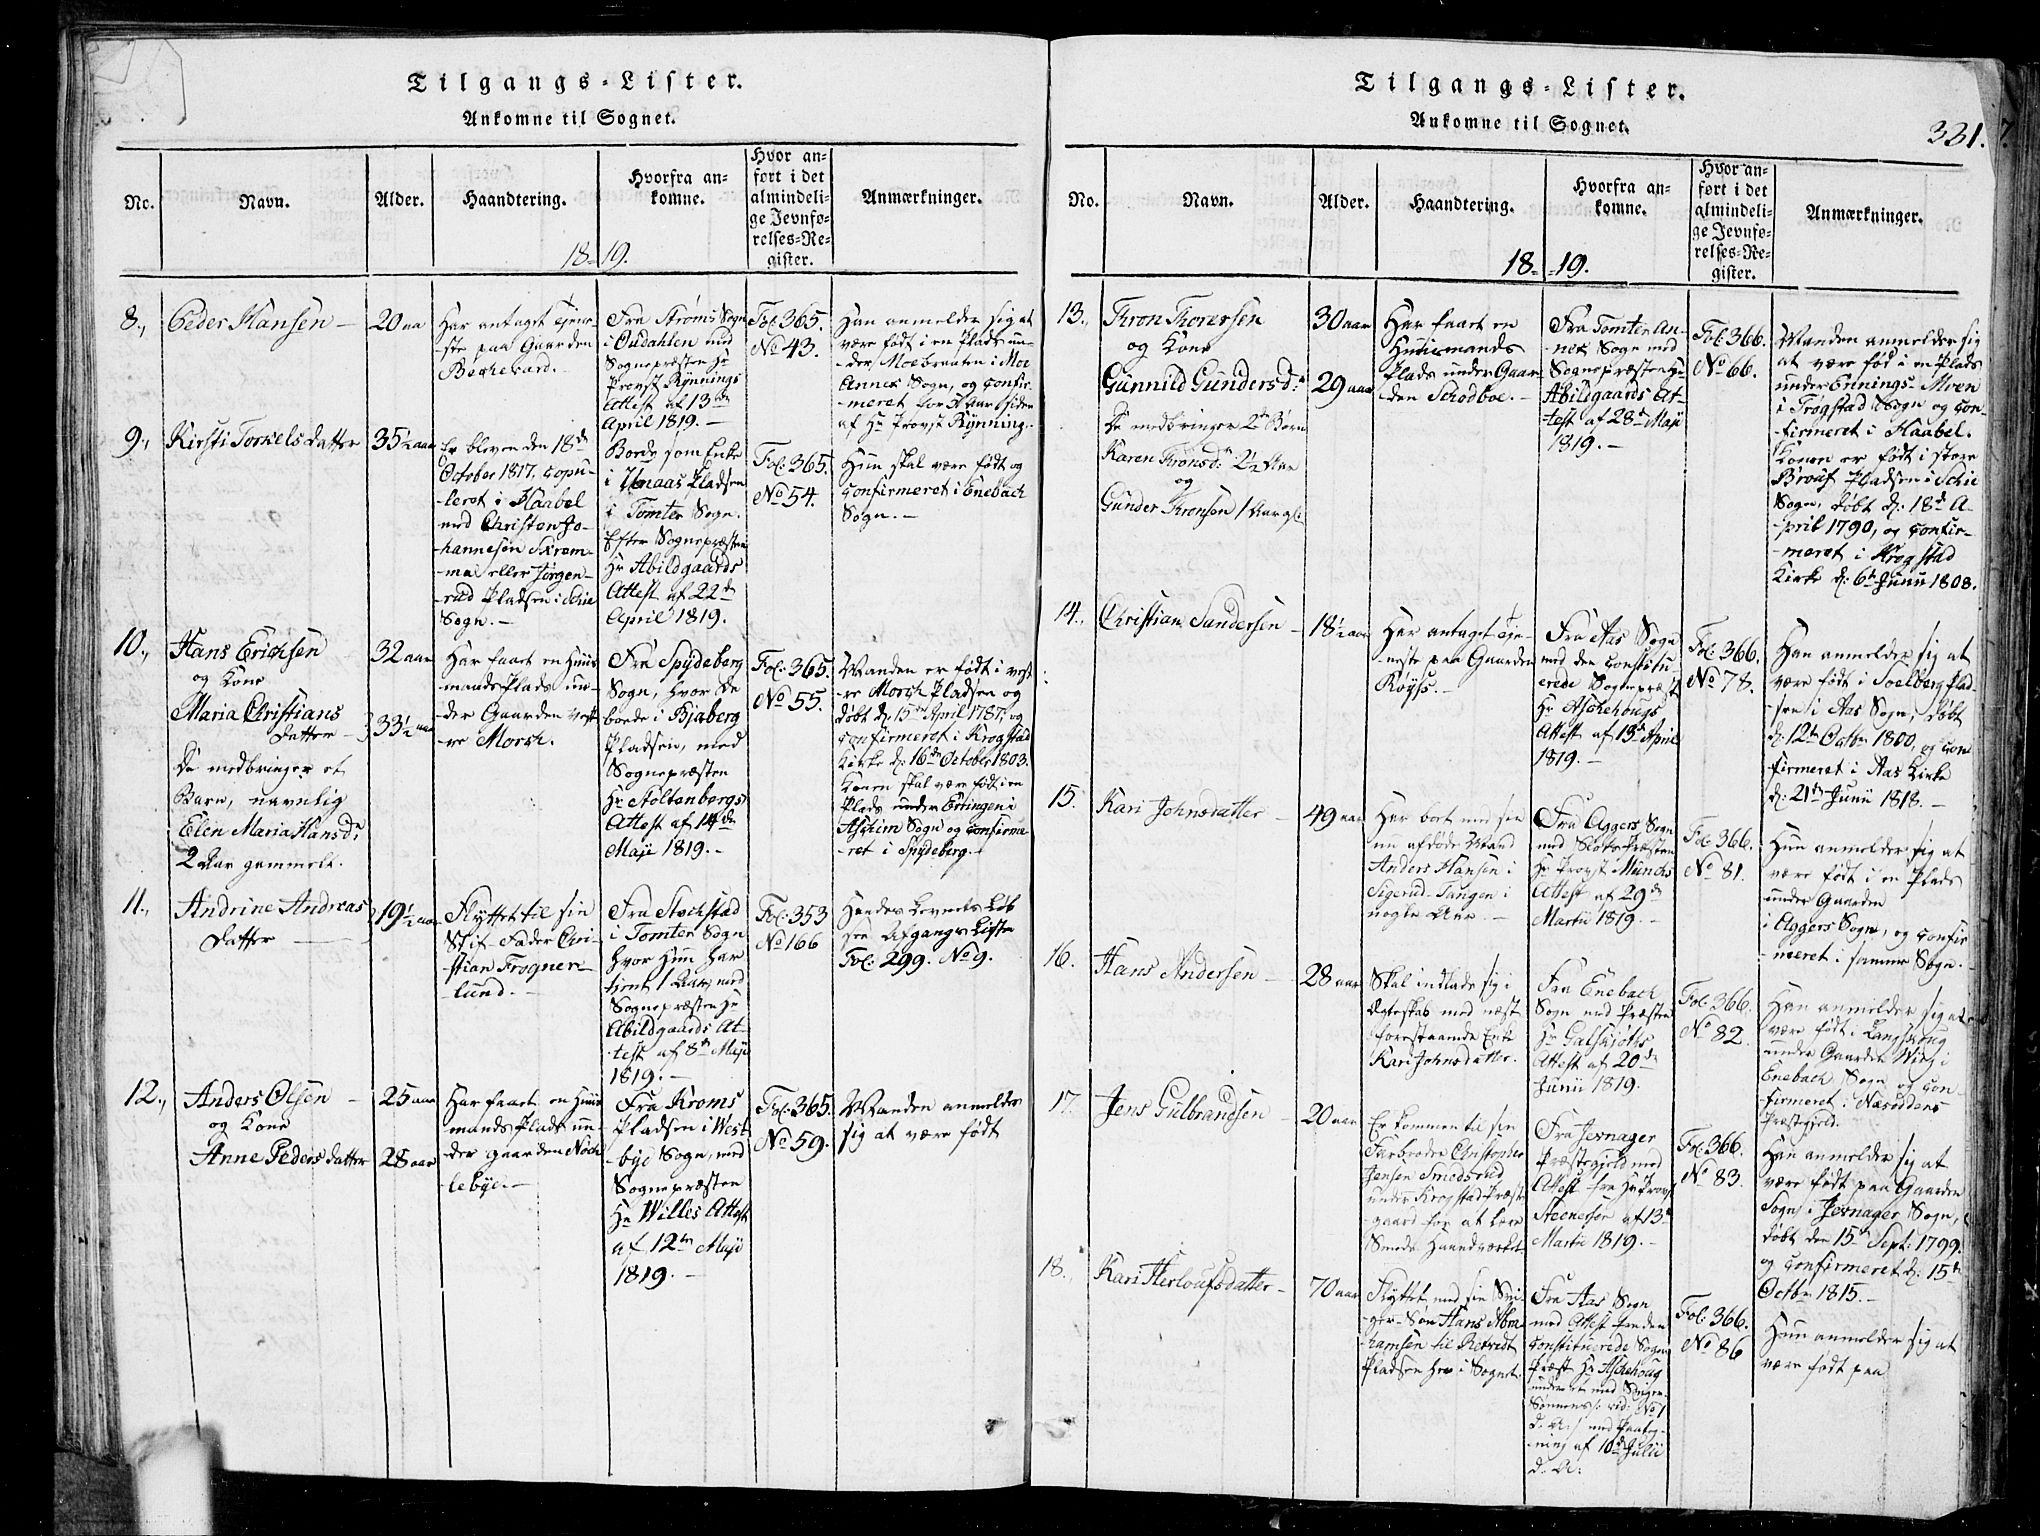 Tilgangs-Lister.
Ankomne til Sognet.
No.
Navn.
Alder.
Haandtering.
Hvorfra an-
komne.
Hvor an-
ført i det
almindeli-
ge Jevnfø-
relses-Re-
gister.
Anmærkninger.
18-19.
8.,
Peder Hansen -
20 aa
Har antaget tjene-
-ste paa Gaarden
Bechevard. -
Fra Strøms Sogn
i Oudahlen med
Sognepræsten Hr
Provst Rynnings
Attest af 13de
April 1819. -
Fol. 365.
No 43.
Han anmelder sig at
være født i en Plads un-
der Moebraaten i Moe
Annex Sogn, og confir-
-meret for 3 Aar siden
af Hr Provst Rynning.-
9.,
Kirsti Torkelsdatter
35½ aar
Er bleven den 18de
October 1817. copu-
leret i Haabel
med Christen Jo-
-hannesen Skrem-
-ma eller Jørgen-
-rud Pladsen i Schie
Sogn. -
Boede som Enke
i Unaas Pladsen
i Tomter Sogn.
Efter Sognepræsten
Hr Abildgaards
Attest af 22de
April 1819.
Fol: 365.
No 54.
Hun skal være født og
confirmeret i Enebach
Sogn. -
10.,
Hans Erichsen
og Kone
Maria Christians
datter -
De medbringer et
Barn, navnlig
Elen Maria Hansd:
2 Aar gammelt.
32 aar
33½ aar
Har faaet en Huus
mands Plads un-
der Gaarden vest-
-re Morch.
Fra Spydeberg
Sogn, hvor de
boede i Bjaberg
Pladsen, med
Sognepræsten
Hr Stoltenbergs
Attest af 14de
Maji 1819. -
Fol: 365.
No 55.
Manden er født i vest
-re Morch Pladsen og
døbt d: 15de April 1787, og
confirmeret i Krogstad
Kirke d: 16de October 1803.
Konen skal være født i en
Plads under Ertingen i
Aschim Sogn og confirme
-ret i Spydeberg.-
11.,
Andrine Andreas
datter -
19½ aar
Flyttet til sin
Stif-Fader Chri-
-stian Frogner-
-lund. -
Fra Stochstad
i Tomter Sogn
hvor Hun har
tjent 1 Aar, med
Sognepræsten Hr
Abildgaards At-
-test af 8de Maji
1819. -
Fol: 353
No 166
Hendes Levnets Løb
see Afgangs Liste
Fol: 299. No 9.
12.,
Anders Olsen -
og Kone
Anne Pedersdatter
25 aar
28 aar
Har faaet en Huus
mands Plads un-
der gaarden Nøch
lebye. -
Fra Kroms
Pladsen i West-
bye Sogn, med
Sognepræsten
Hr Willes Attest
af 12te Maji
1819. -
Fol: 365.
No 59.
Manden anmelder
sig at være født
Tilgangs-Lister.
Ankomne til Sognet.
331.
7.
No.
Navn.
Alder.
Haandtering.
Hvorfra an-
komne.
Hvor an-
ført i det
almindeli-
ge Jevnfø-
relses-Re-
gister.
Anmærkninger.
18-19.
13.,
Thron Thorersen
og Kone
Gunnild Gundersd:
De medbringer 2de Børn
Karen Thronsd: 2½ Aar
og
Gunder Thronsen 1 Aar gl:
30 aar
29 aar
Har faaet en
Huusmands
Plads under Gaar-
den Schodboe. -
Fra Tomter An-
nex Sogn med
Sognepræsten Hr
Abildgaards At-
test af 28de Maji
1819. -
Fol: 366.
No 66.
Manden anmelder sig
at være fød i en Plads
under Ennings-Moen
i Trøgstad Sogn og con-
firmeret i Haabel.
Konen er født i store
Brouf Pladsen i Schie
Sogn, døbt d: 18de A-
-pril 1790, og confir-
-meret i Krogstad
Kirke d: 6te Junii 1808.
14.,
Christian Sundersen -
18½ aar
Har antaget tje-
neste paa Gaarden
Røyss. -
Fra Aas Sogn
med den constitu
erede Sognepræst
Hr Aschehougs
Attest af 13de April
1819. -
Fol: 366.
No 78.
Han anmelder sig at
være født i Soelberg plad-
sen i Aas Sogn, døbt
d: 12te Octbr 1800, og con
firmeret i Aas Kirke
d: 21de Junii 1818. -
15.
Kari Johnsdatter -
49 aar
Har boet med sin
nu afdøde Mand
Anders Hansen i
Sigerud-Tangen i
nogle Aar. -
Fra Aggers Sogn
med Slotspræsten
Hr Provst Münchs
Attest af 29de
Martii 1819. -
Fol: 366.
No 81.
Hun anmelder sig at
være født i en Plads
under Gaarden
i Aggers Sogn, og confir
-meret i samme Sogn. -
16.
Hans Andersen -
28 aar
Skal indlade sig i
Ægteskab med næst
forestaaende Enke
Kari Johnsdatter.
Fra Enebach
Sogn med Præsten
Hr Galschjøtts
Attest af 20de
Junii 1819.
Fol: 366.
No 82.
Han anmelder sig at
være født i Langschoug
under Gaarden Wiig i
Enebach Sogn og con-
firmeret i Næsoddens
Præstegjeld.
17.
Jens Gulbrandsen -
20 aar
Er kommen til sin
Farbroder Christopher
Jensen Smedsrud
under Krogstad Præste
-gaard for at lære
Smede Haandværket
Fra Jevnager
Præstegjeld med
Attest fra Hr Provst
Steenersen af 13de
Martii 1819. -
Fol: 366.
No 83.
Han anmelder sig at
være født paa Gaarden
Sogn i Jevnager Sogn,
døbt den 15de Sept: 1799.
og confirmeret d: 15de
Octbr 1815. -
18.
Kari Herloufsdatter -
70 aar
Flyttet med sin Svi-
ger-Søn Hans Abra
hamsen til Retvedt
Pladsen her i Sognet.
Fra Aas Sogn
med Attest fra den
constituerede Sogne
Præst Hr Aschehoug
under et med Sviger-
Sønnens /: vid: No 1
d. A: / med Paateg-
-ning af 10de Julii
d. A:
Fol: 366.
No 86
Hun anmelder sig at
være født paa